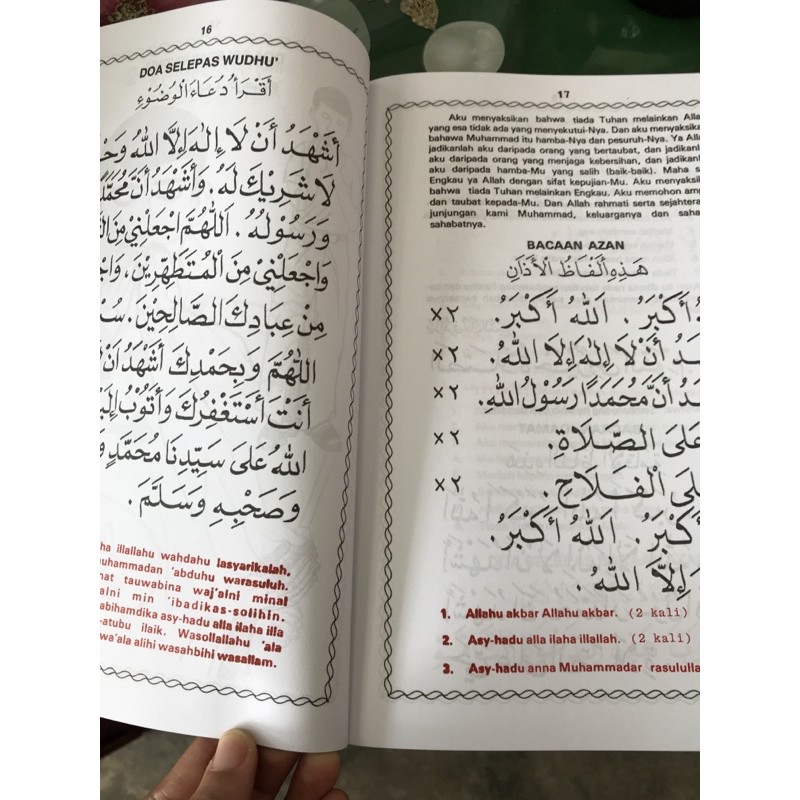 16
DOA SELEPAS WUDHU'
أَقْرَأُ دُعَاءَ الْوُضُوْءِ
أَشْهَدُ أَنْ لَا إِلٰهَ إِلَّا اللهُ
لَا شَرِيْكَ لَهُ. وَأَشْهَدُ أَنَّ
وَرَسُوْلُهُ. اَللّٰهُمَّ اجْعَلْنِيْ مِنَ
وَاجْعَلْنِيْ مِنَ الْمُتَطَهِّرِيْنَ،
مِنْ عِبَادِكَ الصَّالِحِيْنَ.
اللّٰهُمَّ وَبِحَمْدِكَ أَشْهَدُ أَنْ
أَنْتَ أَسْتَغْفِرُكَ وَأَتُوْبُ
اللهُ عَلَى سَيِّدِنَا مُحَمَّدٍ
وَصَحْبِهِ وَسَلَّمَ.
illallahu wahdahu lasyarikalah,
'abduhu warasuluh.
tauwabina waj'alni minal
min 'ibadikas-solihin.
asy-hadu alla ilaha illa
ilaik. Wasollallahu 'ala
wa'ala alihi wasahbihi wasallam.
17
Aku menyaksikan bahwa tiada Tuhan melainkan
yang esa tidak ada yang menyekutui-Nya. Dan aku
bahawa Muhammad itu hamba-Nya dan pesuruh-Nya. Ya
jadikanlah aku daripada orang yang bertaubat, dan
aku daripada orang yang menjaga kebersihan, dan
aku daripada hamba-Mu yang salih (baik-baik). Maha
Engkau ya Allah dengan sifat kepujian-Mu. Aku
bahwa tiada Tuhan melainkan Engkau. Aku memohon
dan taubat kepada-Mu. Dan Allah rahmati serta
junjungan kami Muhammad, keluarganya dan
sahabatnya.
BACAAN AZAN
هٰذِهِ أَلْفَاظُ الْأَذَانِ
أَكْبَرُ. اَللهُ أَكْبَرُ. ×٢
أَنْ لَا إِلٰهَ إِلَّا اللهُ. ×٢
أَنَّ مُحَمَّدًا رَسُوْلُ اللهِ. ×٢
عَلَى الصَّلَاةِ. ×٢
الْفَلَاحِ. ×٢
اَللهُ أَكْبَرُ.
إِلَّا اللهُ.
1. Allahu akbar Allahu akbar. (2 kali)
2. Asy-hadu alla ilaha illallah. (2 kali)
3. Asy-hadu anna Muhammadar